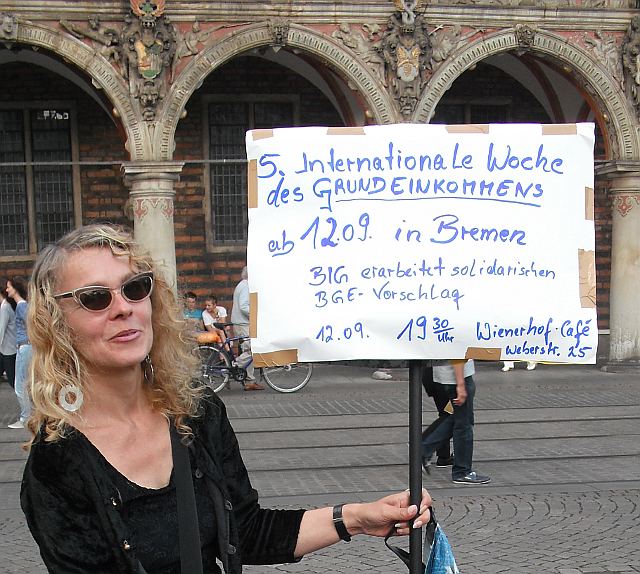 5. Internationale Woche
des GRUNDEINKOMMENS
ab 12.09. in Bremen
BIG erarbeitet solidarischen
BGE-Vorschlag
12.09. 19 30 Uhr Wienerhof-Café
Weberstr. 25